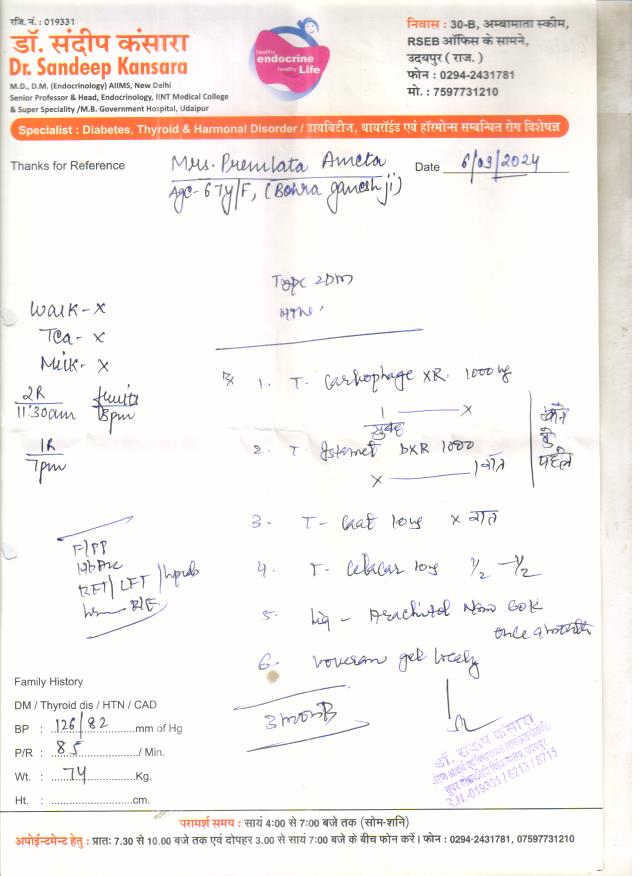 रजि. नं. : 019331
डॉ. संदीप कंसारा
Dr. Sandeep Kansara
M.D., D.M. (Endocrinology) AIIMS, New Delhi
Senior Professor & Head, Endocrinology, RNT Medical College
& Super Speciality /M.B. Government Hospital, Udaipur
healthy
endocrine
healthy Life
निवास : 30-B, अम्बामाता स्कीम,
RSEB ऑफिस के सामने,
उदयपुर ( राज. )
फोन : 0294-2431781
मो. : 7597731210
Specialist : Diabetes, Thyroid & Harmonal Disorder / डायबिटीज, थायरॉईड एवं हॉरमोन्स सम्बन्धित रोग विशेषज्ञ
Thanks for Reference Mrs. Premlata Ameta Date 6/09/2024
Age- 67y/F, (Bohra ganesh ji)
Type 2DM
HTN
Walk - x
Tea - x
Milk - x
2R fruits
11:30am 8pm
1R
7pm
Rx 1. T- Carbophage XR. 1000mg
1 ——— x
सुबह
2. T- Istamet DXR 1000
x ——— 1 रात
खाने
से
पहले
3. T- 10mg x रात
4. T- 10mg 1/2 - 1/2
5. Liq - Arachitol Nano 60K
once a month
6. voveran gel locally
F/PP
HbA1c
RFT/ LFT / lipids
R/E
3 months
Family History
DM / Thyroid dis / HTN / CAD
BP : 126/82 mm of Hg
P/R : 85 / Min.
Wt. : 74 Kg.
Ht. : cm.
डॉ. संदीप कंसारा
R.N.-019331 / 6213 / 8715
परामर्श समय : सायं 4:00 से 7:00 बजे तक (सोम-शनि)
अपोईन्टमेन्ट हेतु : प्रातः 7.30 से 10.00 बजे तक एवं दोपहर 3.00 से सायं 7:00 बजे के बीच फोन करें। फोन : 0294-2431781, 07597731210